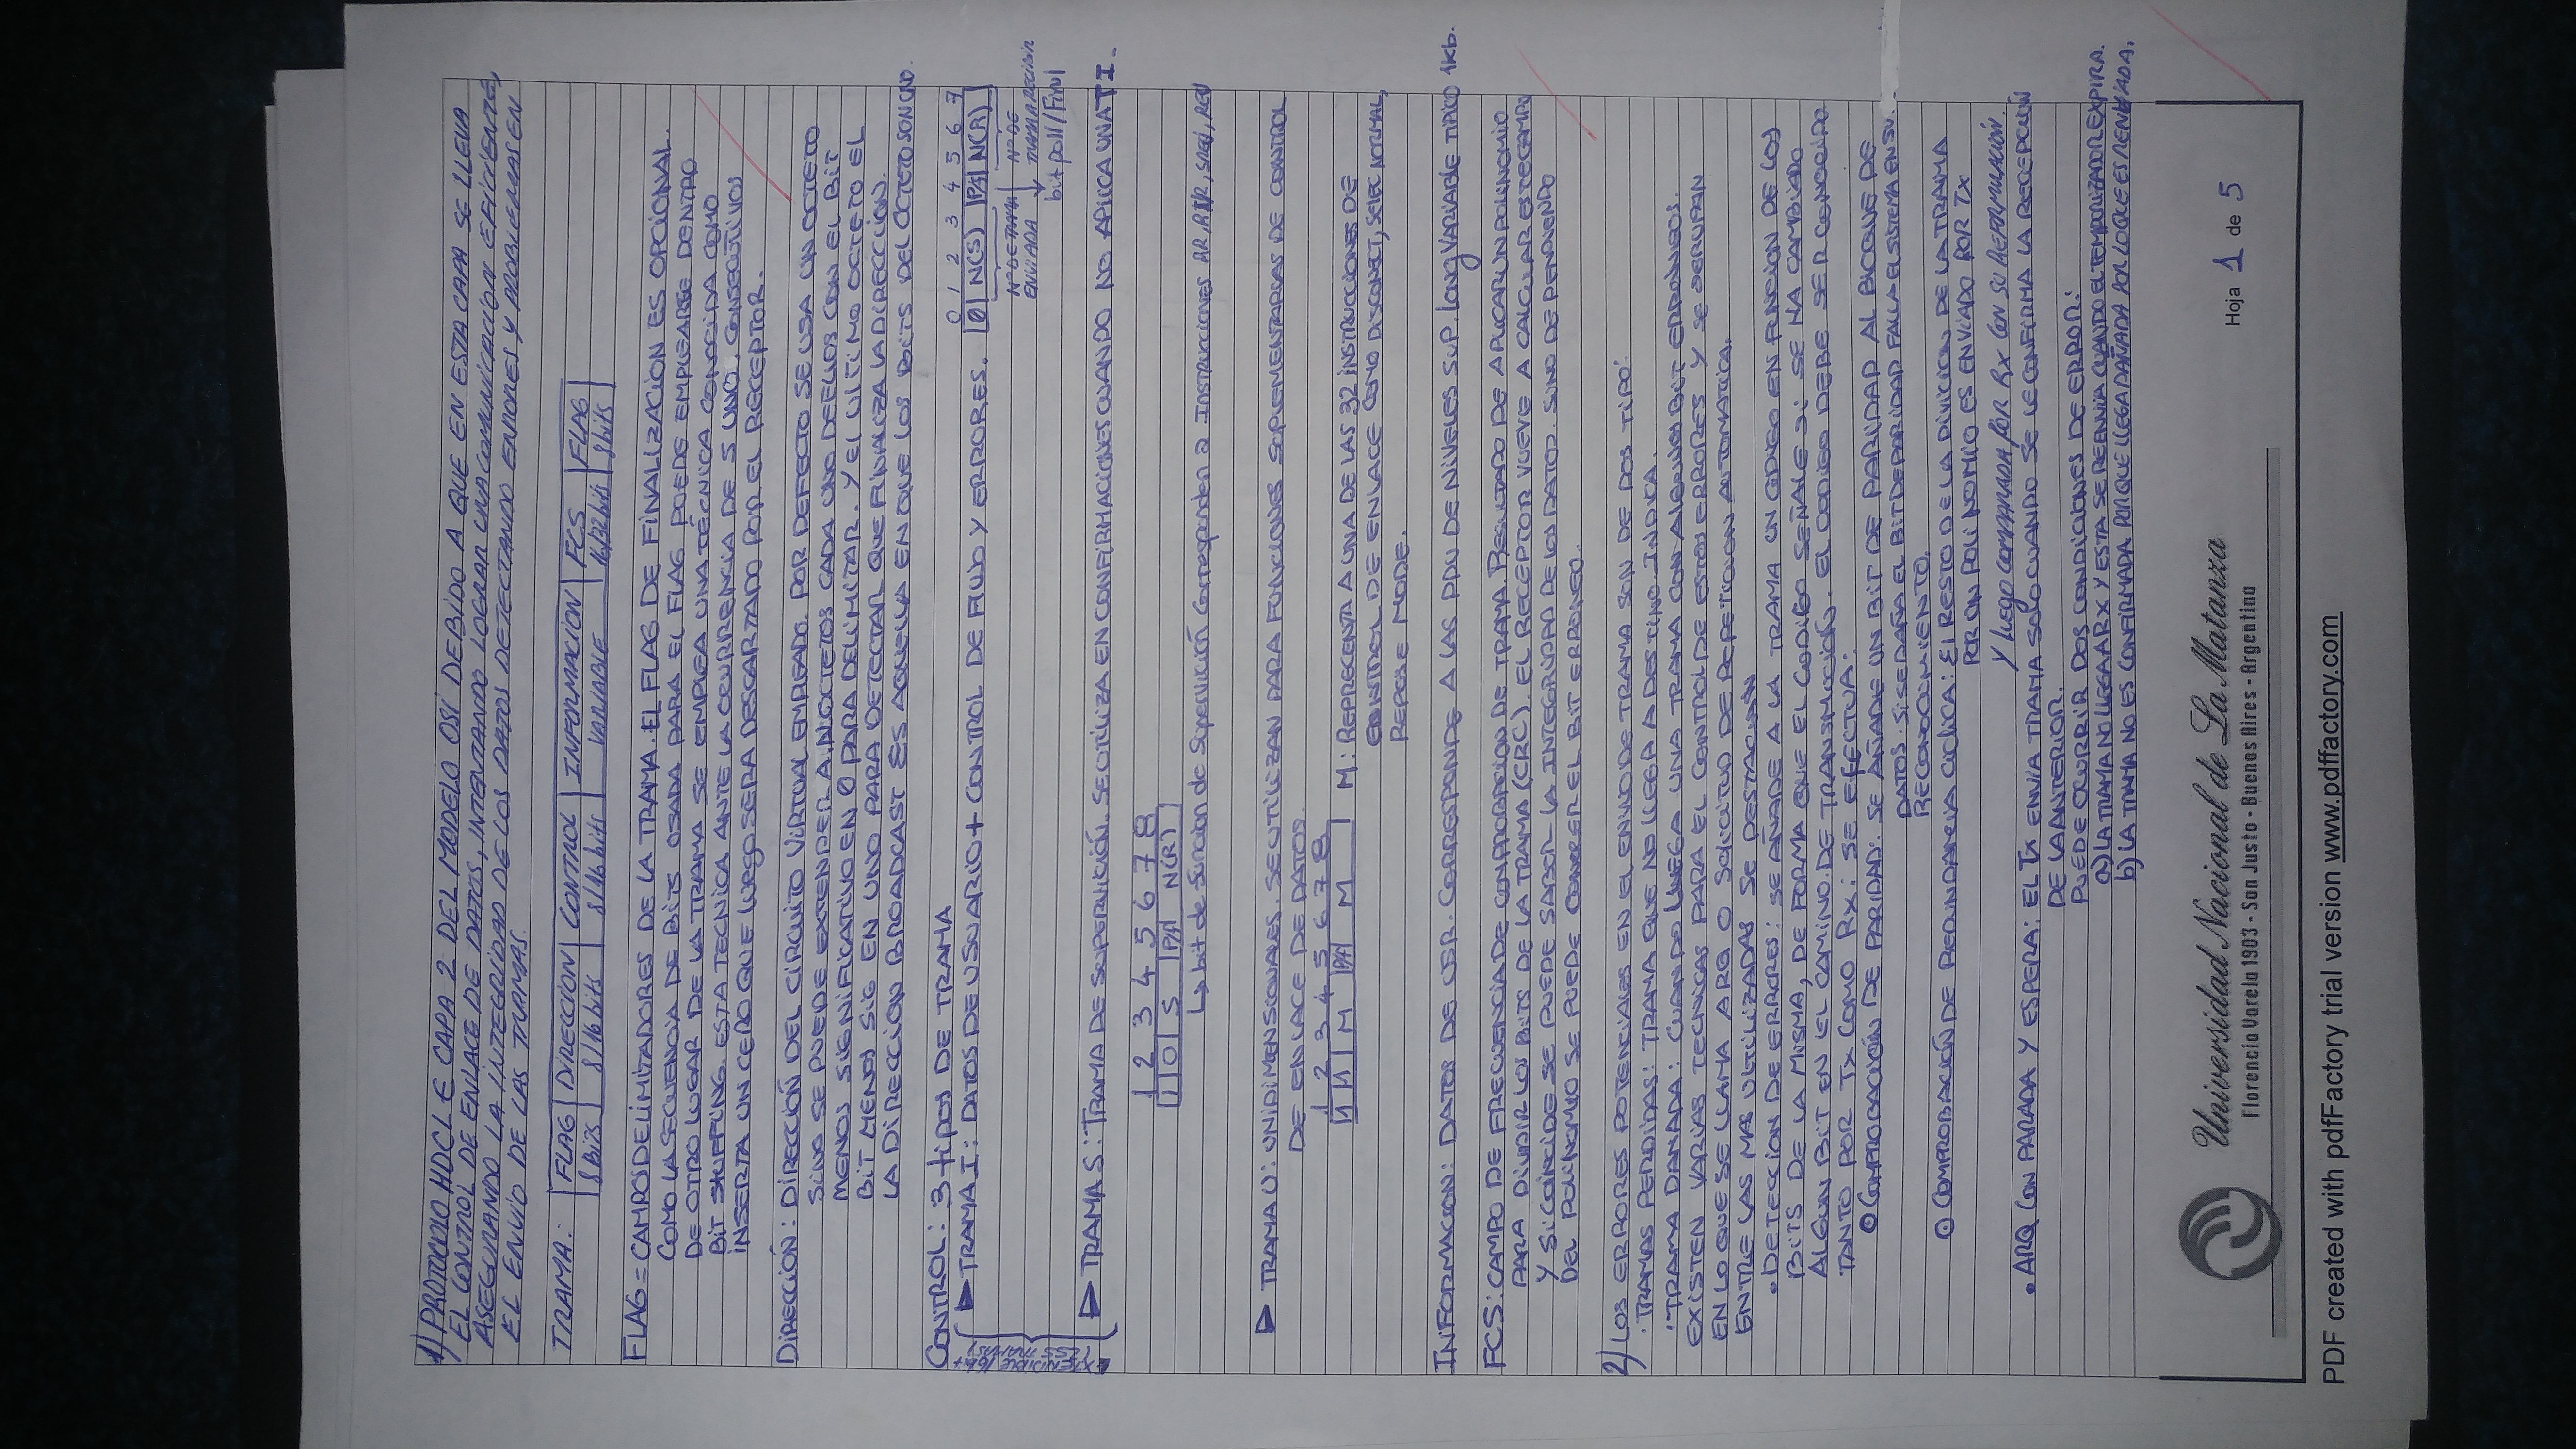 1) PROTOCOLO HDCL E CAPA 2 DEL MODELO OSI DEBIDO A QUE EN ESTA CAPA SE LLEVA
EL CONTROL DE ENLACE DE DATOS, INTENTANDO LOGRAR UNA COMUNICACION EFICIENTE,
ASEGURANDO LA INTEGRIDAD DE LOS DATOS DETECTANDO ERRORES Y PROBLEMAS EN
EL ENVIO DE LAS TRAMAS.
TRAMA: FLAG DIRECCION CONTROL INFORMACION FCS FLAG
8 Bits 8/16 bits 8/16 bits VARIABLE 16/32 bits 8 bits
FLAG = CAMPOS DELIMITADORES DE LA TRAMA. EL FLAG DE FINALIZACION ES OPCIONAL.
COMO LA SECUENCIA DE BITS USADA PARA EL FLAG PUEDE EMPLEARSE DENTRO
DE OTRO LUGAR DE LA TRAMA SE EMPLEA UNA TÉCNICA CONOCIDA COMO
BIT STUFFING. ESTA TECNICA ANTE LA OCURRENCIA DE 5 UNO. CONSECUTIVOS
INSERTA UN CERO QUE LUEGO SERA DESCARTADO POR EL RECEPTOR.
DIRECCIÓN: DIRECCIÓN DEL CIRCUITO VIRTUAL EMPLEADO. POR DEFECTO SE USA UN OCTETO
SINO SE PUEDE EXTENDER A N OCTETOS CADA UNO DE ELLOS CON EL BIT
MENOS SIGNIFICATIVO EN 0 PARA DELIMITAR. Y EL ULTIMO OCTETO EL
BIT MENOS SIG EN UNO PARA DETECTAR QUE FINALIZA LA DIRECCIÓN.
LA DIRECCION BROADCAST ES AQUELLA EN QUE LOS BITS DEL OCTETO SON UNO.
CONTROL: 3 tipos DE TRAMA
0 1 2 3 4 5 6 7
TRAMA I: DATOS DE USUARIO + CONTROL DE FLUJO Y ERRORES. 0 N(S) P/F N(R)
Nº DE TRAMA ENVIADA Nº DE TRAMA A RECIBIR
bit poll/Final
EXTENDIBLE
TRAMA S: TRAMA DE SUPERVICIÓN. SE UTILIZA EN CONFIRMACIONES CUANDO NO APLICA UNA T I.
1 2 3 4 5 6 7 8
1 0 S P/F N(R)
bit de funcion de Supervición Corresponden a INSTRUCCIONES RR, RNR, SREJ, REJ
TRAMA U: UNIDIMENSIONALES. SE UTILIZAN PARA FUNCIONES SUPLEMENTARIAS DE CONTROL
DE ENLACE DE DATOS.
1 2 3 4 5 6 7 8
1 1 M P/F M M: REPRECENTA A UNA DE LAS 32 INSTRUCCIONES DE
CONTROL DE ENLACE COMO DISCONECT, SELEC NORMAL,
MODE.
INFORMACION: DATOS DE USR. CORRESPONDE A LAS PDU DE NIVELES SUP. Long VARIABLE TIPICO 1kb.
FCS: CAMPO DE FRECUENCIA DE COMPROBACION DE TRAMA. RESULTADO DE APLICAR UN POLINOMIO
PARA DIVIDIR LOS BITS DE LA TRAMA (CRC). EL RECEPTOR VUEVE A CALCULAR ESTE CAMPO
Y SI COINCIDE SE PUEDE SABER LA INTEGRIDAD DE LOS DATOS. SINO DEPENDIENDO
DEL POLINOMIO SE PUEDE CONOCER EL BIT ERRONEO.
2) LOS ERRORES POTENCIALES EN EL ENVIO DE TRAMA SON DE DOS TIPO:
· TRAMAS PERDIDAS: TRAMA QUE NO LLEGA A DESTINO INDICA.
· TRAMA DAÑADA: CUANDO LLEGA UNA TRAMA CON ALGUNOS BIT ERRONEOS.
EXISTEN VARIAS TECNICAS PARA EL CONTROL DE ESTOS ERRORES Y SE AGRUPAN
EN LO QUE SE LLAMA ARQ O SOLICITUD DE REPETICION AUTOMATICA.
ENTRE LAS MAS ULTILIZADAS SE DESTACAN
• DETECCION DE ERRORES: SE AÑADE A LA TRAMA UN CODIGO EN FUNCION DE LOS
BITS DE LA MISMA, DE FORMA QUE EL CODIGO SEÑALE SI SE HA CAMBIADO
ALGUN BIT EN EL CAMINO DE TRANSMICIÓN. EL CODIGO DEBE SER CONOCIDO
TANTO POR Tx COMO Rx: SE EFECTUA:
COMPROBACIÓN DE PARIDAD: SE AÑADE UN BIT DE PARIDAD AL BLOQUE DE
DATOS. SI SE DAÑA EL BIT DE PARIDAD FALLA EL SISTEMA EN SU
RECONOCIMIENTO.
COMPROBACIÓN DE REDUNDANCIA CICLICA: EL RESTO DE LA DIVICION DE LA TRAMA
POR UN POLINOMIO ES ENVIADO POR TX
Y LUEGO COMPARADA POR Rx CON SU REFORMULACIÓN.
• ARQ CON PARADA Y ESPERA: EL Tx ENVIA TRAMA SOLO CUANDO SE LE CONFIRMA LA RECEPCIÓN
DE LA ANTERIOR.
PUEDE OCURRIR DOS CONDICIONES DE ERROR:
a) LA TRAMA NO LLEGA A RX Y ESTA SE REENVIA CUANDO EL TEMPORIZADOR EXPIRA.
b) LA TRAMA NO ES CONFIRMADA PORQUE LLEGA DAÑADA POR LO QUE ES RENVIADA.
Universidad Nacional de La Matanza
Florencio Varela 1903 - San Justo - Buenos Aires - Argentina
Hoja 1 de 5
PDF created with pdfFactory trial version www.pdffactory.com